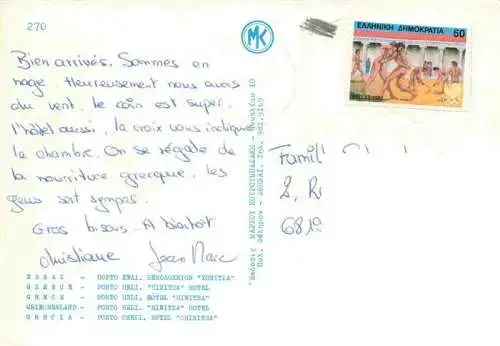 270
MK
ΕΛΛΗΝΙΚΗ ΔΗΜΟΚΡΑΤΙΑ 60
Bien arrivés. Sommes en
nage. Heureusement nous avons
du vent, le coin est super,
l'hôtel aussi, la croix vous indique
la chambre. On se régale de
la nourriture grecque, les
gens sont sympas.
Gros bisous. A bientôt
Christiane Jean Marc
Famill
2, R
681
ΕΛΛΑΣ - ΠΟΡΤΟ ΧΕΛΙ, ΞΕΝΟΔΟΧΕΙΟΝ "ΧΙΝΙΤΣΑ"
GREECE - PORTO HELI, "HINITSA" HOTEL
GRECE - PORTO HELI, HÔTEL "HINITSA"
GRIECHENLAND - PORTO HELI, "HINITSA" HOTEL
GRECIA - PORTO CHELI, HOTEL "CHINITSA"